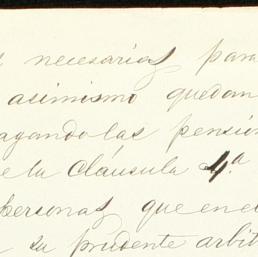 necesarias para
asimismo quedan
pagando las pensio
e la Cláusula 4.ª
personas que en e
su prudente arbit